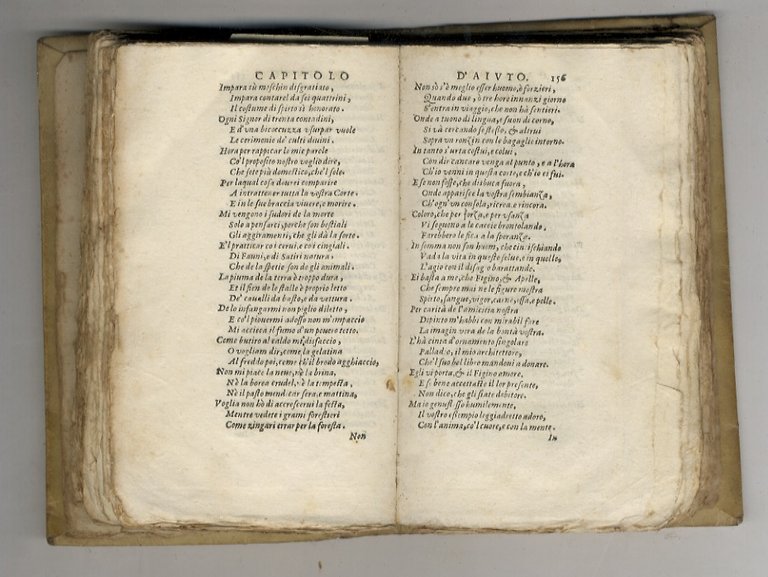 CAPITOLO
Impara tù meschin disgratiato,
Impara contarel da sei quattrini,
Il costume di spirto sì honorato.
Ogni Signor di trenta contadini,
E d'vna bicoccuzza vsurpar vuole
Le cerimonie de' culti diuini.
Hora per rappiccar le mie parole
Co'l proposito nostro voglio dire,
Che sete più domestico, che'l sole.
Per laqual cosa dourei comparire
A intrattener tutta la vostra Corte
E in le sue braccia viuere, e morire.
Mi vengono i sudori de la morte
Solo a pensarci, perche son bestiali
Gli aggiramenti, che gli dà la sorte.
E'l pratticar co i cerui, e coi cingiali.
Di Fauni, e di Satiri natura
Che de la spetie son de gli animali.
La piuma de la terra è troppo dura,
Et il fien de lo stalle è proprio letto
De' caualli da basto, e da vettura.
De lo infangarmi non piglio diletto,
E co'l piouermi adosso non m'impaccio
Mi accieca il fumo d'un pouero tetto.
Come butiro al caldo mi disfaccio,
O vogliam dir, come la gelatina
Al freddo poi, come il brodo agghiaccio,
Non mi piace la neue, nè la brina,
Nè la borea crudel, nè la tempesta,
Nè il pasto mendicar sera, e mattina,
Voglia non hò di accrescerui la festa,
Mentre vedete i grami forestieri
Come zingari errar per la foresta.
Non
D'AIVTO. 156
Non sò s'è meglio esser huomo, è sparuieri,
Quando due, ò tre hore innanzi giorno
S'entra in viaggio, che non hà sentieri.
Onde a tuono di lingua, e suon di corno,
Si và cercando se stesso, & altrui
Sopra vn ronzin con le bagaglie intorno.
In tanto s'urta costui, e colui,
Con dir cancaro venga al punto, e a l'hora
Ch'io venni in questa corte, ch'io ci fui.
E se non fosse, che di buca fuora,
Onde apparisce la vostra sembianza,
Ch'ogn'vn consola, ricrea, e rincora.
Coloro, che per forza, e per vsanza
Vi seguono a le caccie brontolando,
Farebbero le fica a la speranza.
In somma non son huom, che
Vada la vita in queste selue, e in quelle,
L'agio con il disagio barattando.
Ei basta a me, che Figino, & Apelle,
Che sempre mai ne le figure mostra
Spirto, sangue, vigor, carne, ossa, e pelle.
Per carità de l'amicitia nostra
Dipinto m'habbi con mirabil fare
La imagin vera de la bontà vostra.
L'hà cinta d'ornamento singolare
Palladio, il mio architettore,
Che'l suo bel libro mandoui a donare.
Egli vi porta, & il Figino amore.
E se bene accettaste il lor presente,
Non dico, che gli siate debitore.
Ma io genuflesso humilmente,
Il vostro essempio leggiadretto adoro,
Con l'anima, co'l cuore, e con la mente.
In